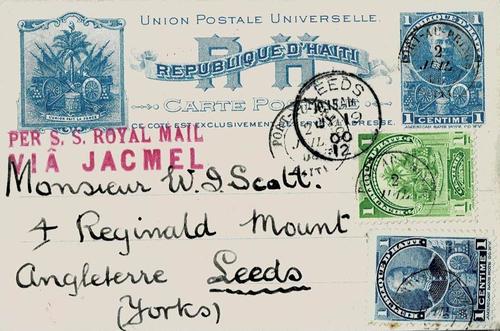 UNION POSTALE UNIVERSELLE.
RÉPUBLIQUE D'HAITI
R H
CARTE POSTALE
CE CÔTÉ EST EXCLUSIVEMENT RÉSERVÉ À L'ADRESSE.
L'UNION FAIT LA FORCE
1 1
CENTIME
AMERICAN BANK NOTE CO. N.Y.
PORT-AU-PRINCE
2
JUIL
LEEDS
10.15 AM
JY 19
00
12
PER S. S. ROYAL MAIL
VIÂ JACMEL
Monsieur W. J. Scott.
4 Reginald Mount
Angleterre Leeds
(Yorks)
1 1
REPUBLIQUE D'HAITI
1 1
UN CENTIME